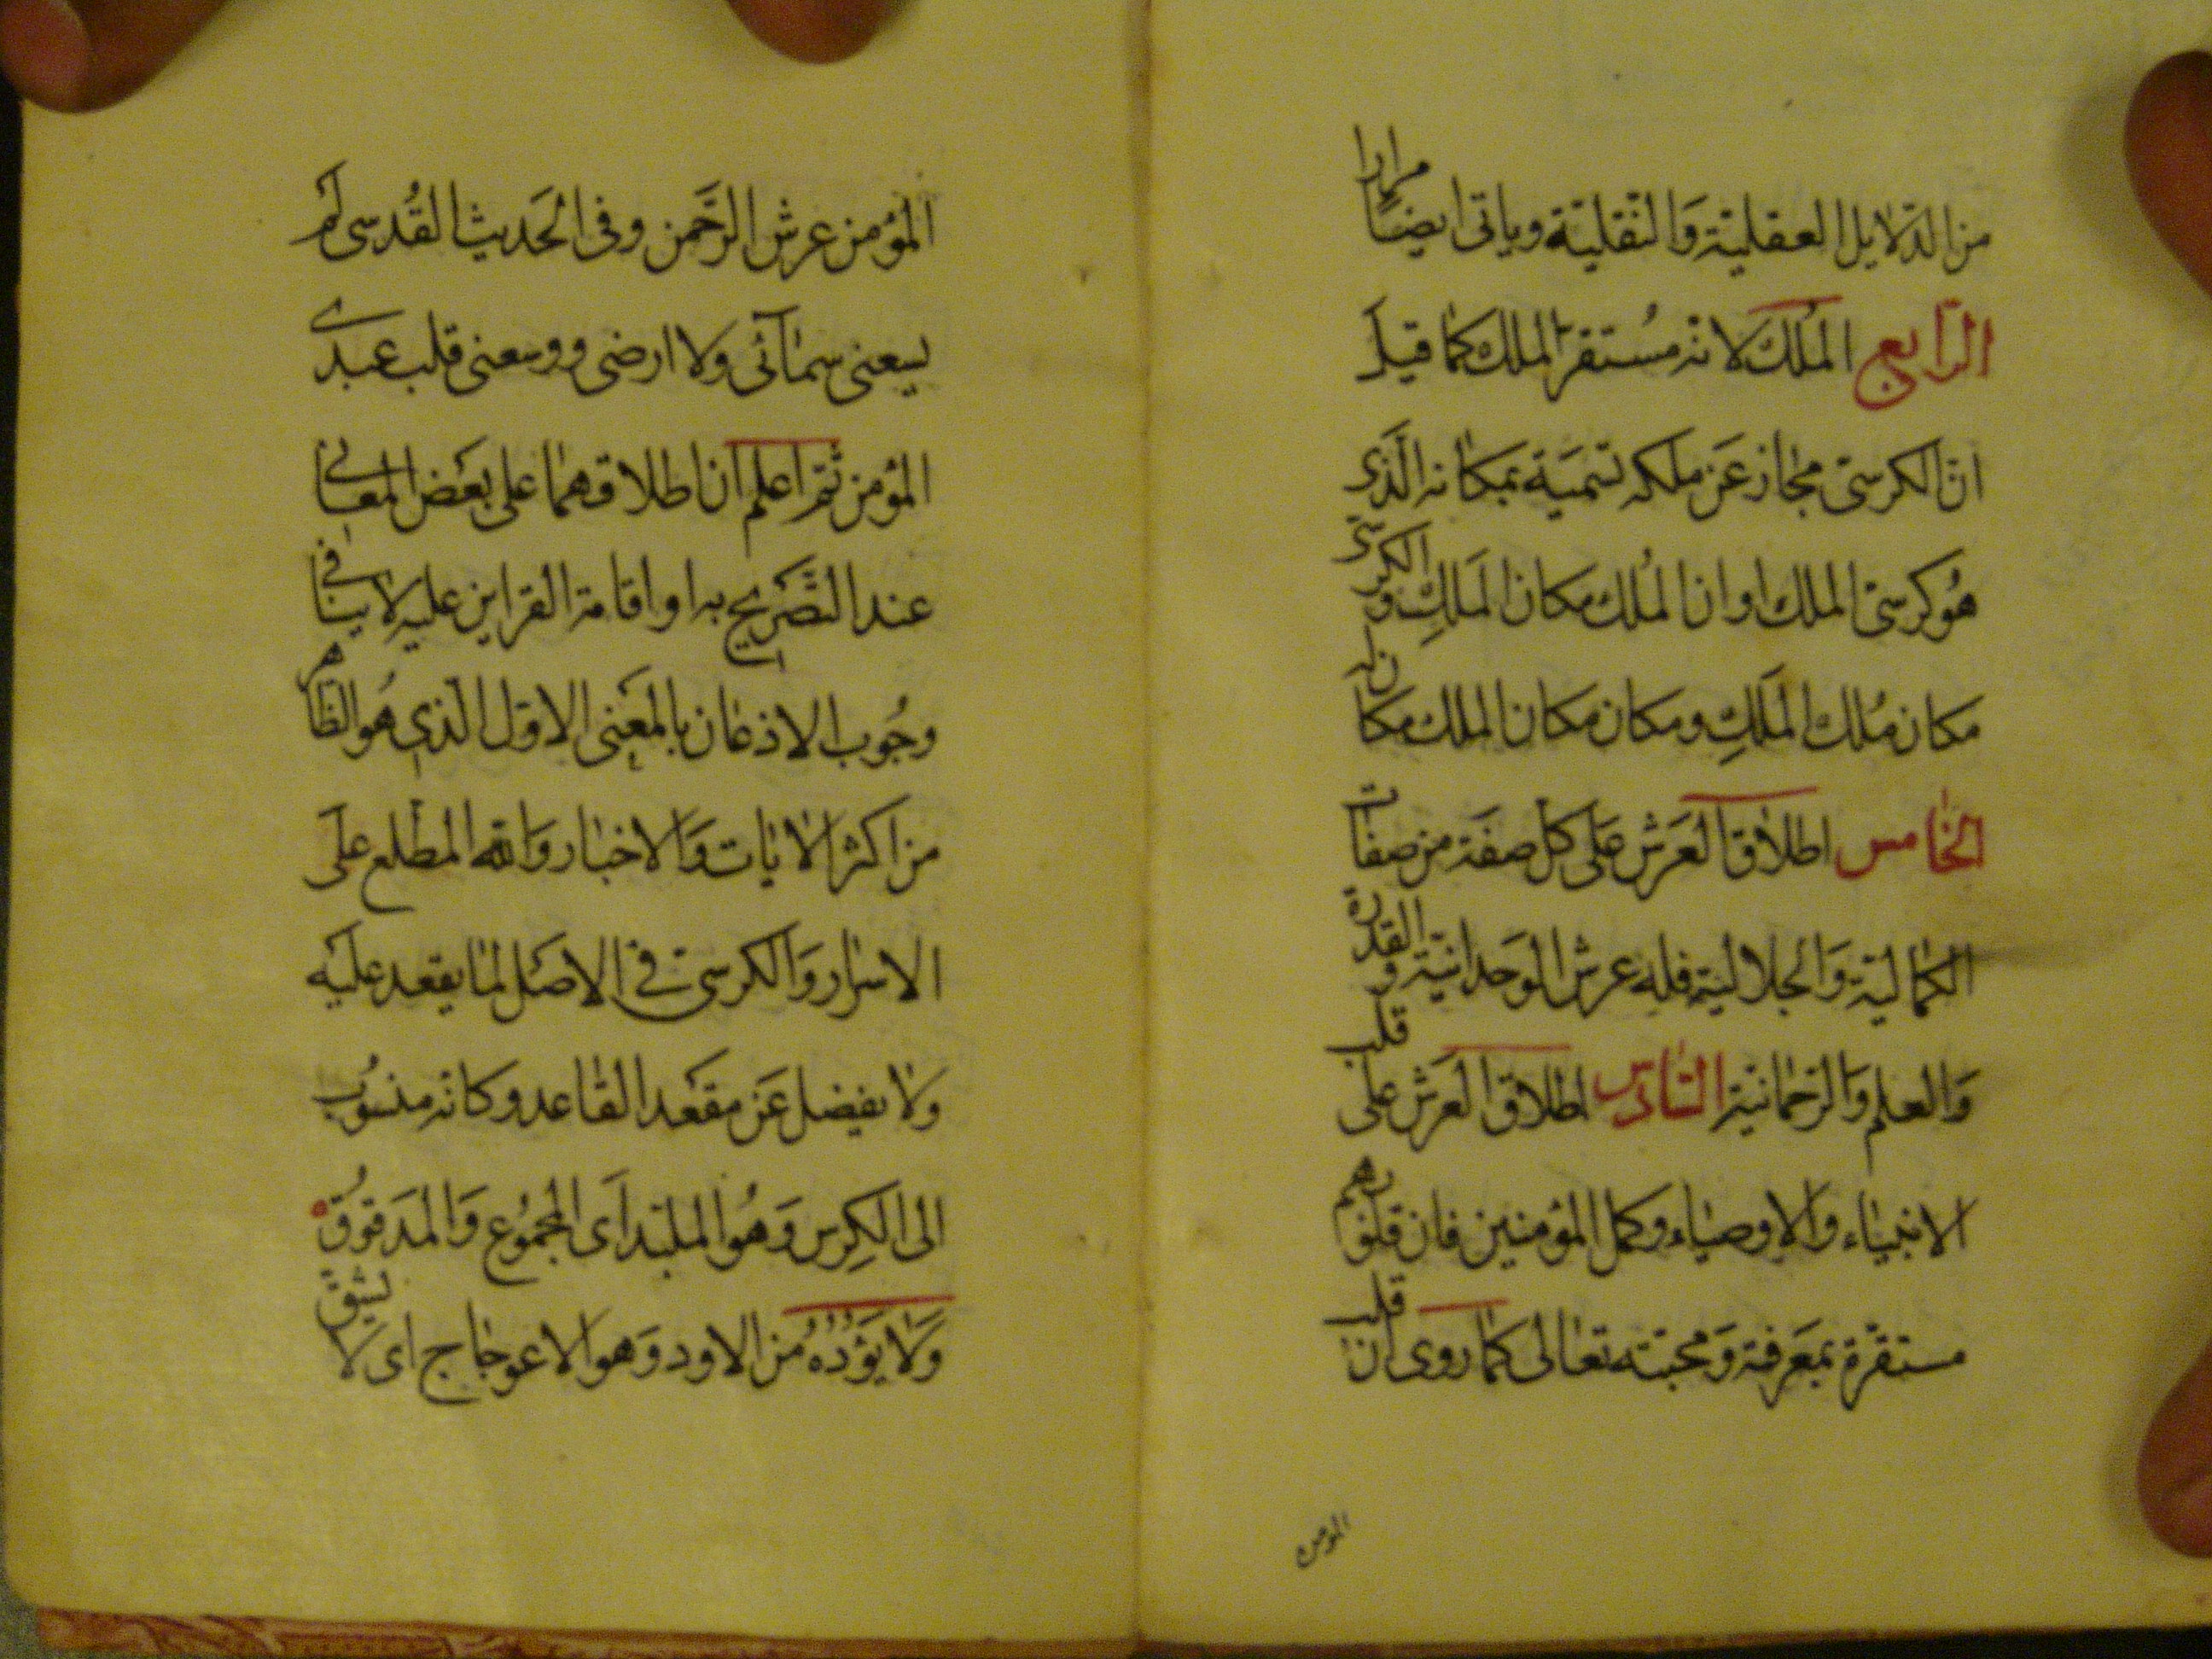 من الدّلايل العقليّة وَالنّقليّة وياتى ايضاً مراراً
الرّابع المُلك لانّه مُستقرّ الملك كما قيل
انّ الكرسىّ مجاز عَن ملكه تسميَة بمكانه الّذى
هُو كرسىّ الملك او انّ المُلك مكان المَلِكِ والكرسىّ
مكان مُلك المَلِكِ ومكان مكان الملك مكانه
الخامس اطلاق العَرش عَلى كل صفَة من صفات
الكماليّة وَالجلاليّة فله عرش الوَحدانيّة والقدرة
وَالعلم وَالرّحمانيّة السّادس اطلاق العَرش على قلب
الانبياء والاوصياء وكمل المؤمنين فان قلوبهم
مستقرّة بمَعرفة وَمحبّته تعالى كما روى انّ قلب
المؤمن
المؤمن عرش الرّحَمن وفى الحَديث القُدسى لم
يسعنى سمائى ولا ارضى ووسعنى قلب عبدى
المؤمن ثمّ اعلم انّ اطلاقهما على بعَض المعَانى
عند التّصَريح به او اقامة القراين عليه لا ينافى
وجُوب الاذعان بالمعَنى الاوّل الّذى هُو الظّاهر
من اكثر الايات وَالاخبار وَالله المطّلع عَلى
الاسرار وَالكرسىّ فى الاصَل لما يقعد عليَه
ولا يفضل عَن مقعَد القاعد وكانّه منسُوب
الى الكِرس وَهُو الملبّد اَى المجمُوع وَالمدَقوُق
وَلا يَؤُدُهُ من الاود وَهو الاعوجاج اى لا يشقّ